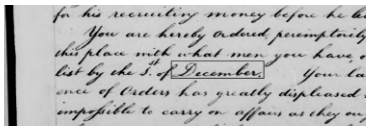 for his recruiting money before he
You are hereby ordered, peremptorily
this place with what men you have
list by the 1st of December. Your
ence of Orders has greatly displeased
impossible to carry on affairs as they